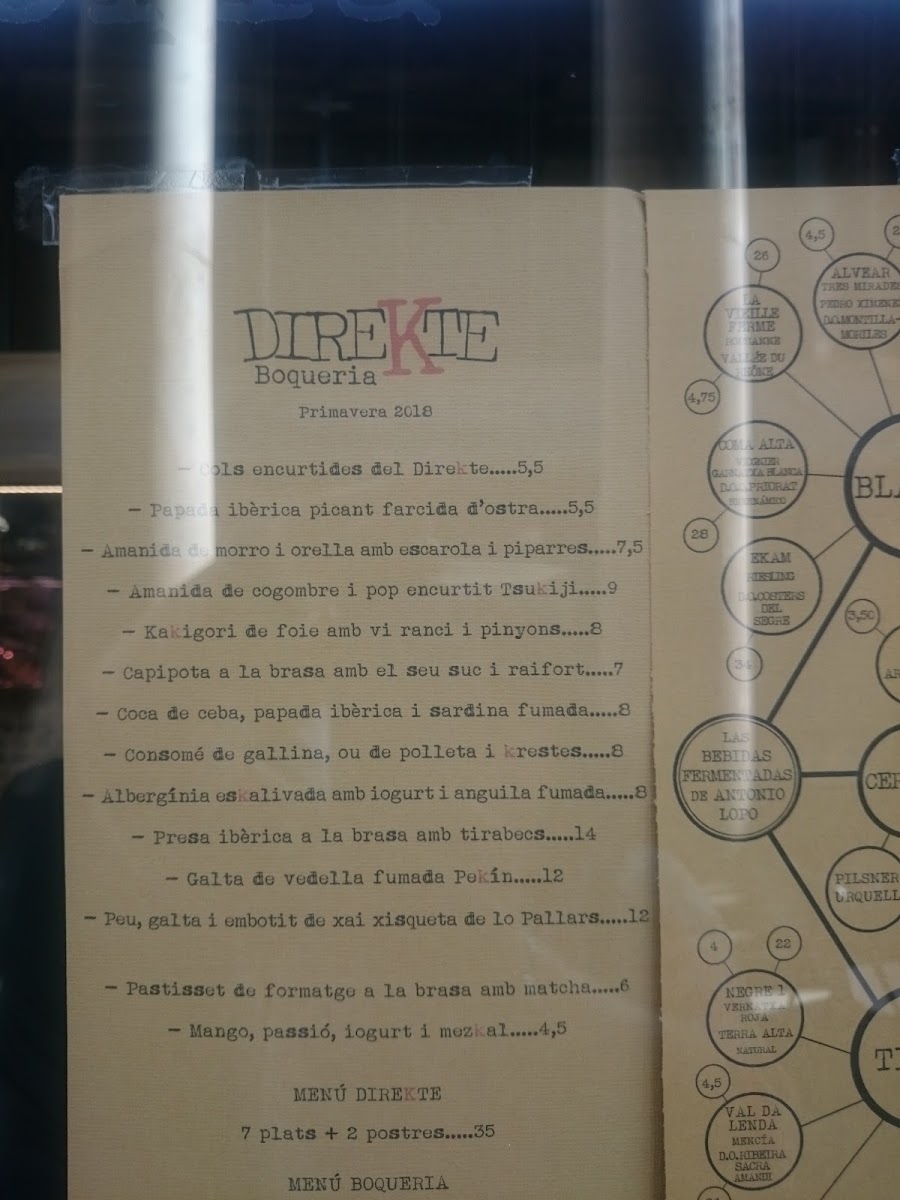 DIREKTE
Boqueria
Primavera 2018
- Cols encurtides del Direkte.....5,5
- Papada ibèrica picant farcida d'ostra.....5,5
- Amanida de morro i orella amb escarola i piparres.....7,5
- Amanida de cogombre i pop encurtit Tsukiji.....9
- Kakigori de foie amb vi ranci i pinyons.....8
- Capipota a la brasa amb el seu suc i raifort.....7
- Coca de ceba, papada ibèrica i sardina fumada.....8
- Consomé de gallina, ou de polleta i krestes.....8
- Albergínia eskalivada amb iogurt i anguila fumada.....8
- Presa ibèrica a la brasa amb tirabecs.....14
- Galta de vedella fumada Pekín.....12
- Peu, galta i embotit de xai xisqueta de lo Pallars.....12
- Pastisset de formatge a la brasa amb matcha.....6
- Mango, passió, iogurt i mezkal.....4,5
MENÚ DIREKTE
7 plats + 2 postres.....35
MENÚ BOQUERIA
26
LA
VIEILLE
FERME
VALLÉE DU
RHÔNE
4,75
4,5
ALVEAR
TRES MIRADES
PEDRO XIMENE
D.O.MONTILLA-
MORILES
COMA ALTA
GARNATXA BLANCA
D.O.PRIORAT
28
EKAM
RIESLING
D.O.COSTERS
DEL
SEGRE
34
BLA
3,50
AR
LAS
BEBIDAS
FERMENTADAS
DE ANTONIO
LOPO
CER
PILSNER
URQUELL
4
22
NEGRE 1
VERNATXA
ROJA
TERRA ALTA
NATURAL
4,5
VAL DA
LENDA
MENCÍA
D.O.RIBEIRA
SACRA
AMANDI